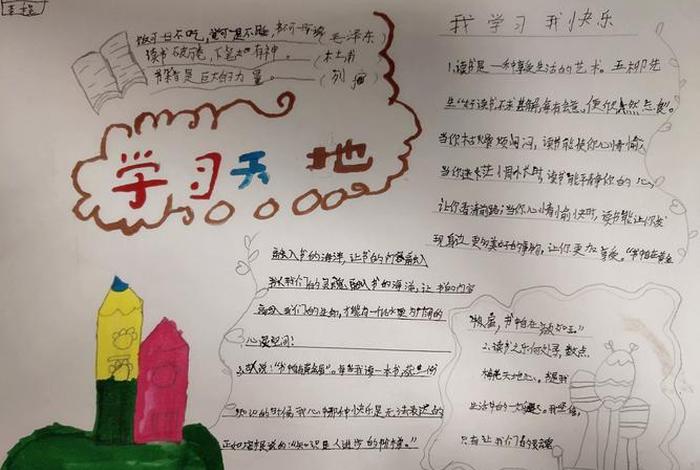 饭可一日不吃，觉可一日不睡，书不可一日不读（毛泽东）
读书破万卷，下笔如有神。（杜甫
书籍是巨大的力量。（列
学习天地
我学习 我快乐
1.读书是一种享受生活的艺术。五柳先
生"好读书，不求甚解，每有会意，便欣然忘食"。
当你枯燥烦闷，读书能使你心情愉
当你迷茫惆怅时，读书能平静你的心，
让你看清前路；当你心情愉快时，读书能让你发
现身边更多美好的事物，让你更加享受。"书中自有黄金
融入书的海洋，让书的内容融入
我们的灵魂融入书的海洋，让书的内容
融入我们的生命，才能有一片水更与广阔的
心灵空间！
说："书中自有黄金屋"。每当我读一本书，获 一份
知识的时候我心中那种快乐是无法表达的
正如 说的："知识是人进步的阶梯。"
屋，书中自有颜如玉"
2.读书之乐何处寻，数点
梅花天地心。书是我
生活中的一 。我坚信，
只有让我们的灵魂